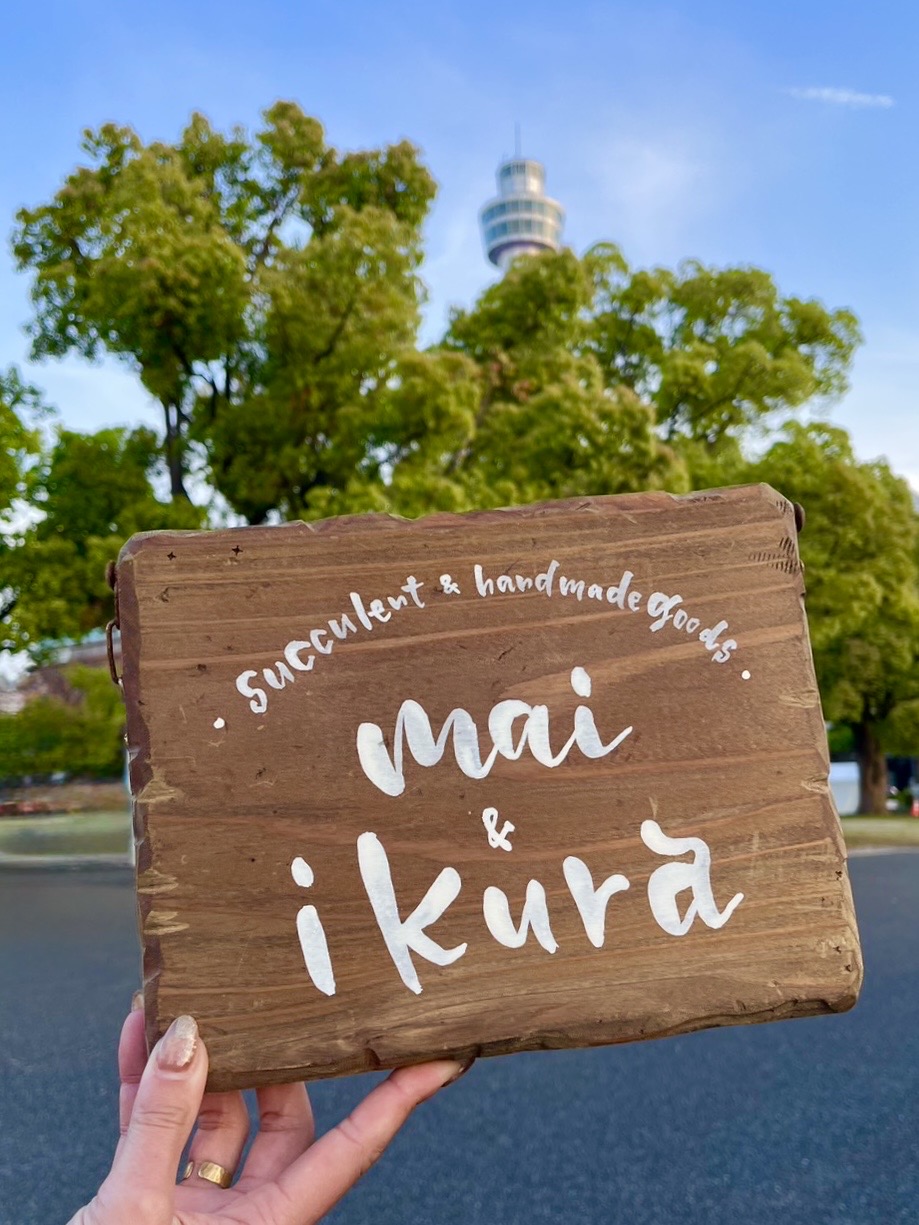 • succulent & handmade goods •
mai
&
ikura